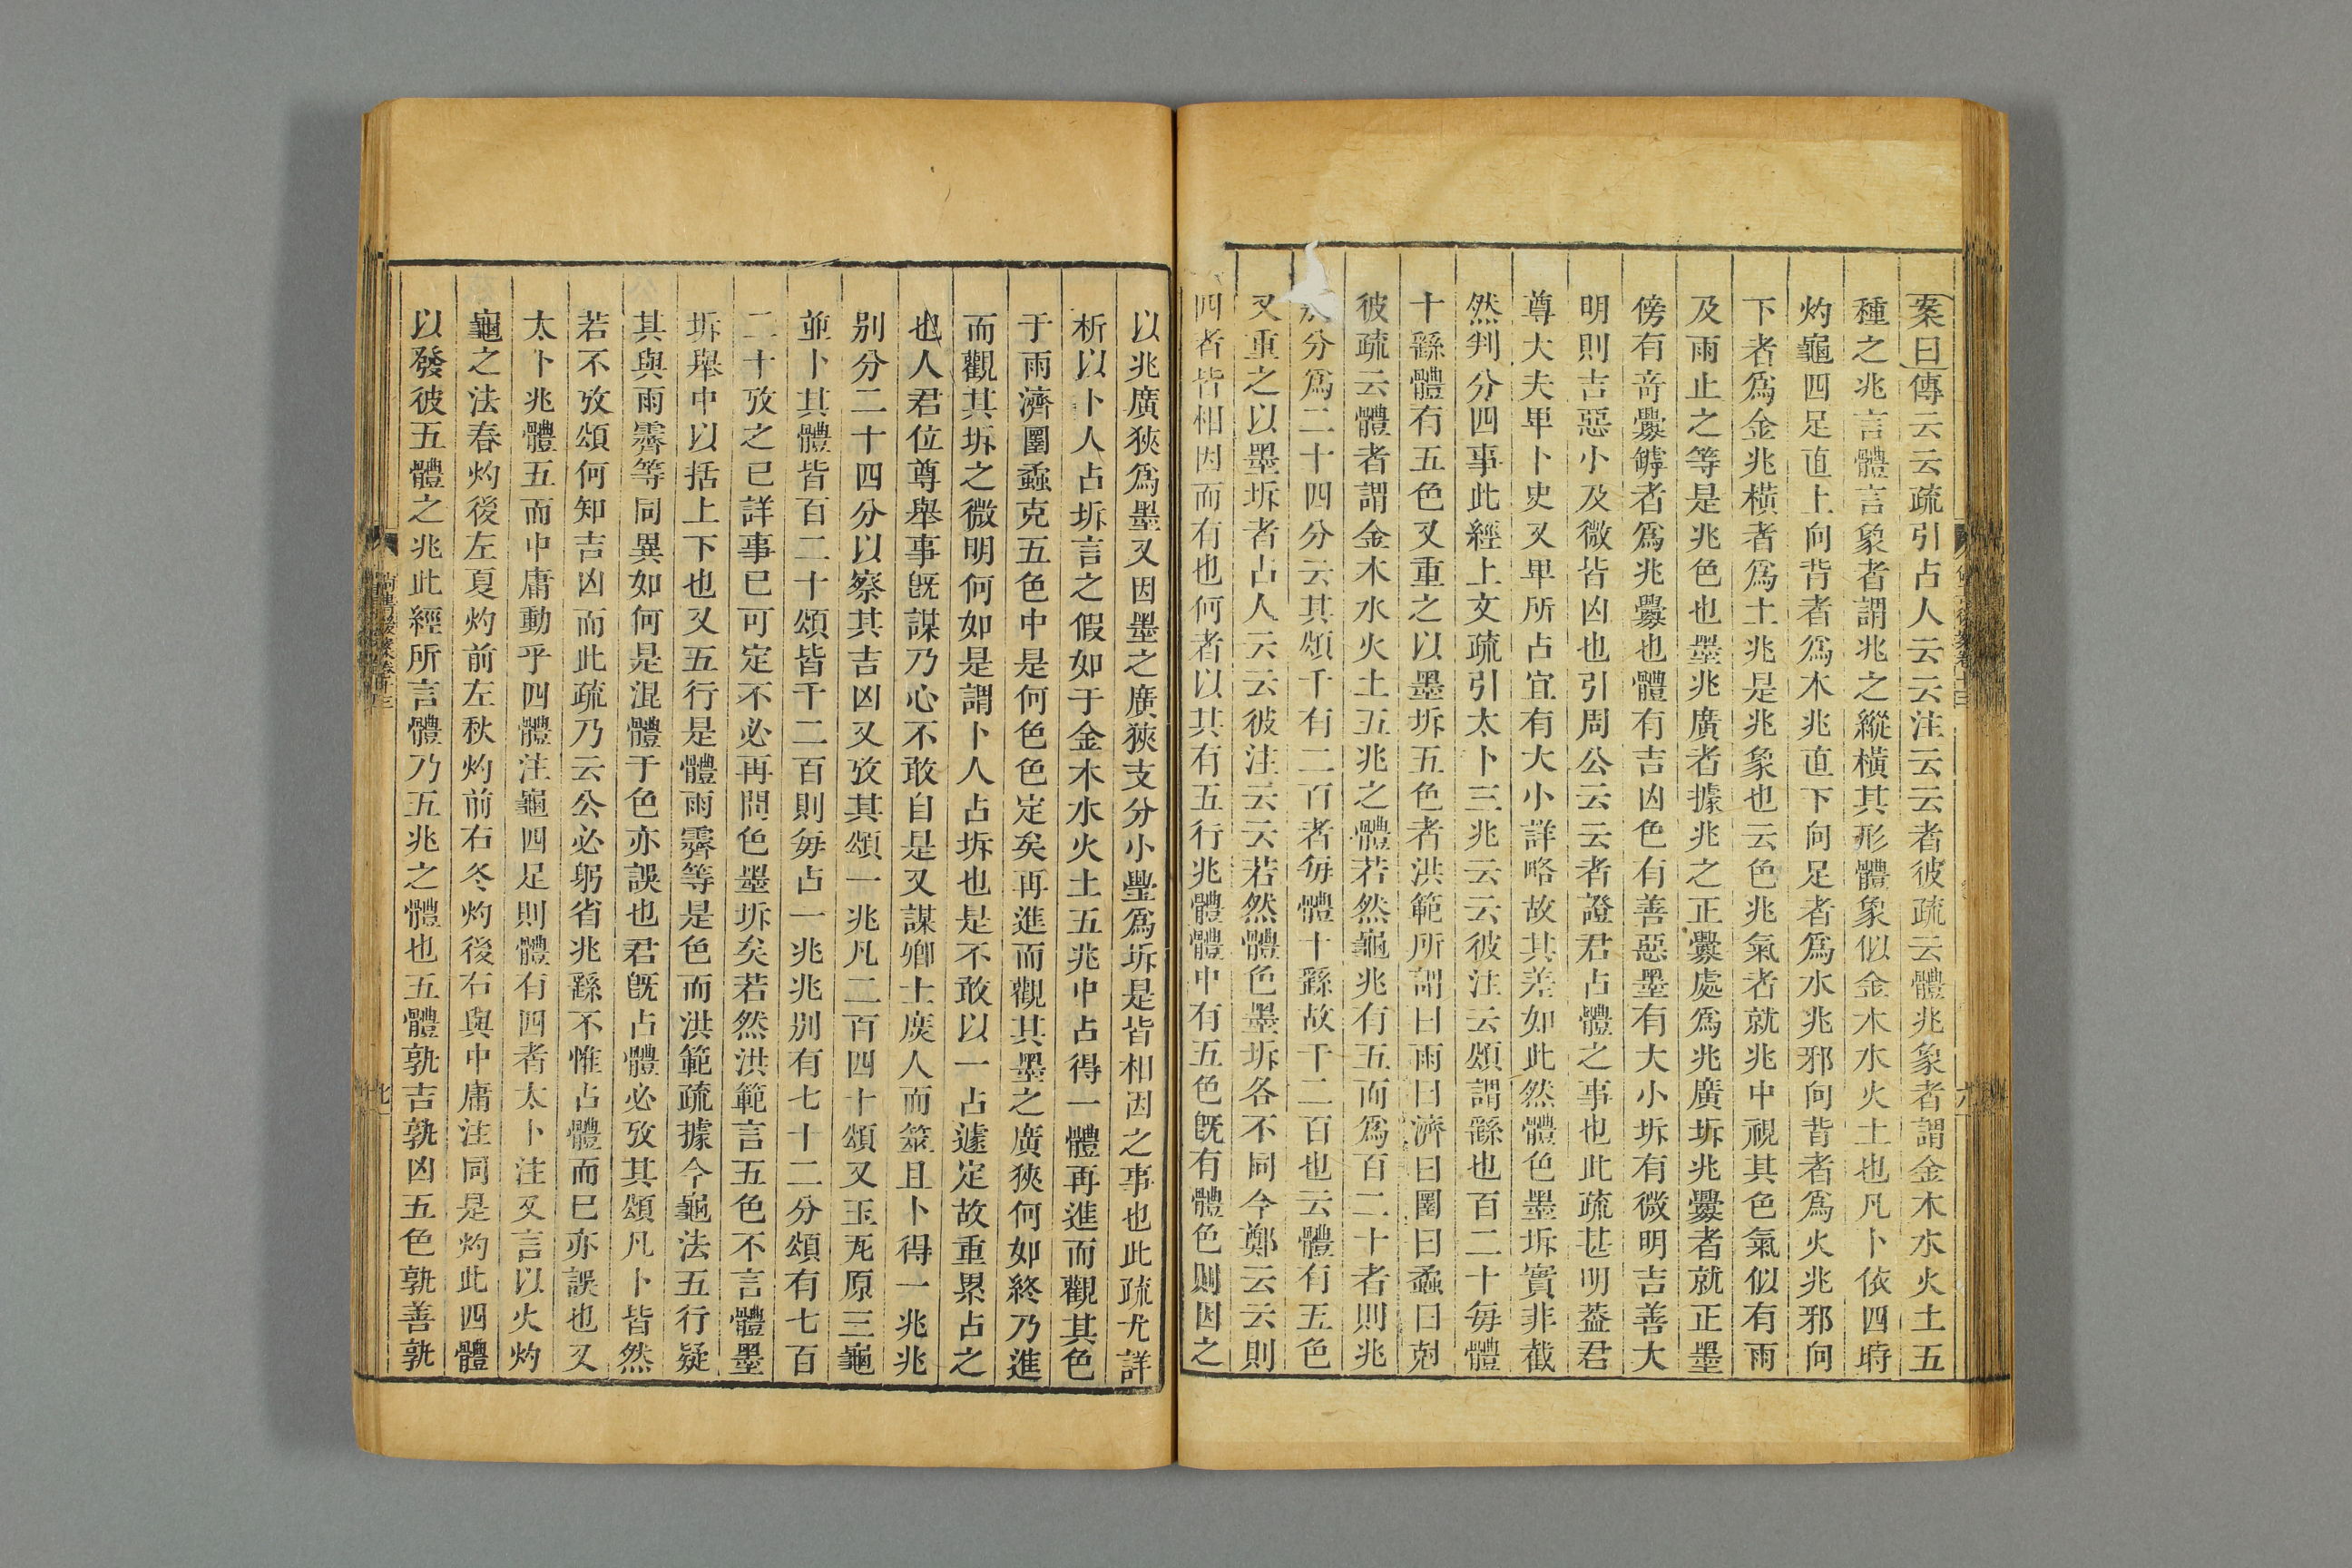 案曰傳云云疏引占人云云注云云者彼疏云體兆象者謂金木水火土五
種之兆言體言象者謂兆之縱橫其形體象似金木水火土也凡卜依四時
灼龜四足直上向背者爲木兆直下向足者爲水兆邪向背者爲火兆邪向
下者爲金兆橫者爲土兆是兆象也云色兆氣者就兆中視其色氣似有雨
及雨止之等是兆色也墨兆廣者據兆之正釁處爲兆廣坼兆釁者就正墨
傍有奇釁罅者爲兆釁也體有吉凶色有善惡墨有大小坼有微明吉善大
明則吉惡小及微皆凶也引周公云云者證君占體之事也此疏甚明蓋君
尊大夫卑卜史又卑所占宜有大小詳略故其差如此然體色墨坼實非截
然判分四事此經上文疏引太卜三兆云云彼注云頌謂繇也百二十每體
十繇體有五色又重之以墨坼五色者洪範所謂曰雨曰濟曰圛曰蟊曰剋
彼疏云體者謂金木水火土五兆之體若然龜兆有五而爲百二十者則兆
分爲二十四分云其頌千有二百者每體十繇故千二百也云體有五色
又重之以墨坼者占人云云彼注云云若然體色墨坼各不同今鄭云云則
四者皆相因而有也何者以其有五行兆體體中有五色既有體色則因之
以兆廣狹爲墨又因墨之廣狹支分小亹爲坼是皆相因之事也此疏尤詳
析以卜人占坼言之假如于金木水火土五兆中占得一體再進而觀其色
于雨濟圛蟊克五色中是何色色定矣再進而觀其墨之廣狹何如終乃進
而觀其坼之微明何如是謂卜人占坼也是不敢以一占遽定故重累占之
也人君位尊舉事既謀乃心不敢自是又謀卿士庶人而筮且卜得一兆兆
别分二十四分以察其吉凶又攷其頌一兆凡二百四十頌又玉瓦原三龜
並卜其體皆百二十頌皆千二百則每占一兆兆別有七十二分頌有七百
二十攷之已詳事已可定不必再問色墨坼矣若然洪範言五色不言體墨
坼舉中以括上下也又五行是體雨霽等是色而洪範疏據今龜法五行疑
其與雨霽等同異如何是混體于色亦誤也君既占體必攷其頌凡卜皆然
若不攷頌何知吉凶而此疏乃云公必躬省兆繇不惟占體而已亦誤也又
太卜兆體五而中庸動乎四體注龜四足則體有四者太卜注又言以火灼
龜之法春灼後左夏灼前左秋灼前右冬灼後右與中庸注同是灼此四體
以發彼五體之兆此經所言體乃五兆之體也五體孰吉孰凶五色孰善孰